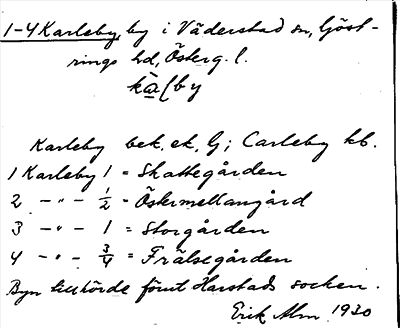 1-4 Karleby, by i Väderstad sn, Göst-
rings hd, Österg. l.
Karleby bek. ek. G; Carleby kb.
1 Karleby 1 = Skattegården
2 -"- 1/2 = Östermellangård
3 -"- 1 = Storgården
4 -"- 3/4 = Frälsegården
Byn tillhörde förut Harstads socken.
Erik Alm 1930